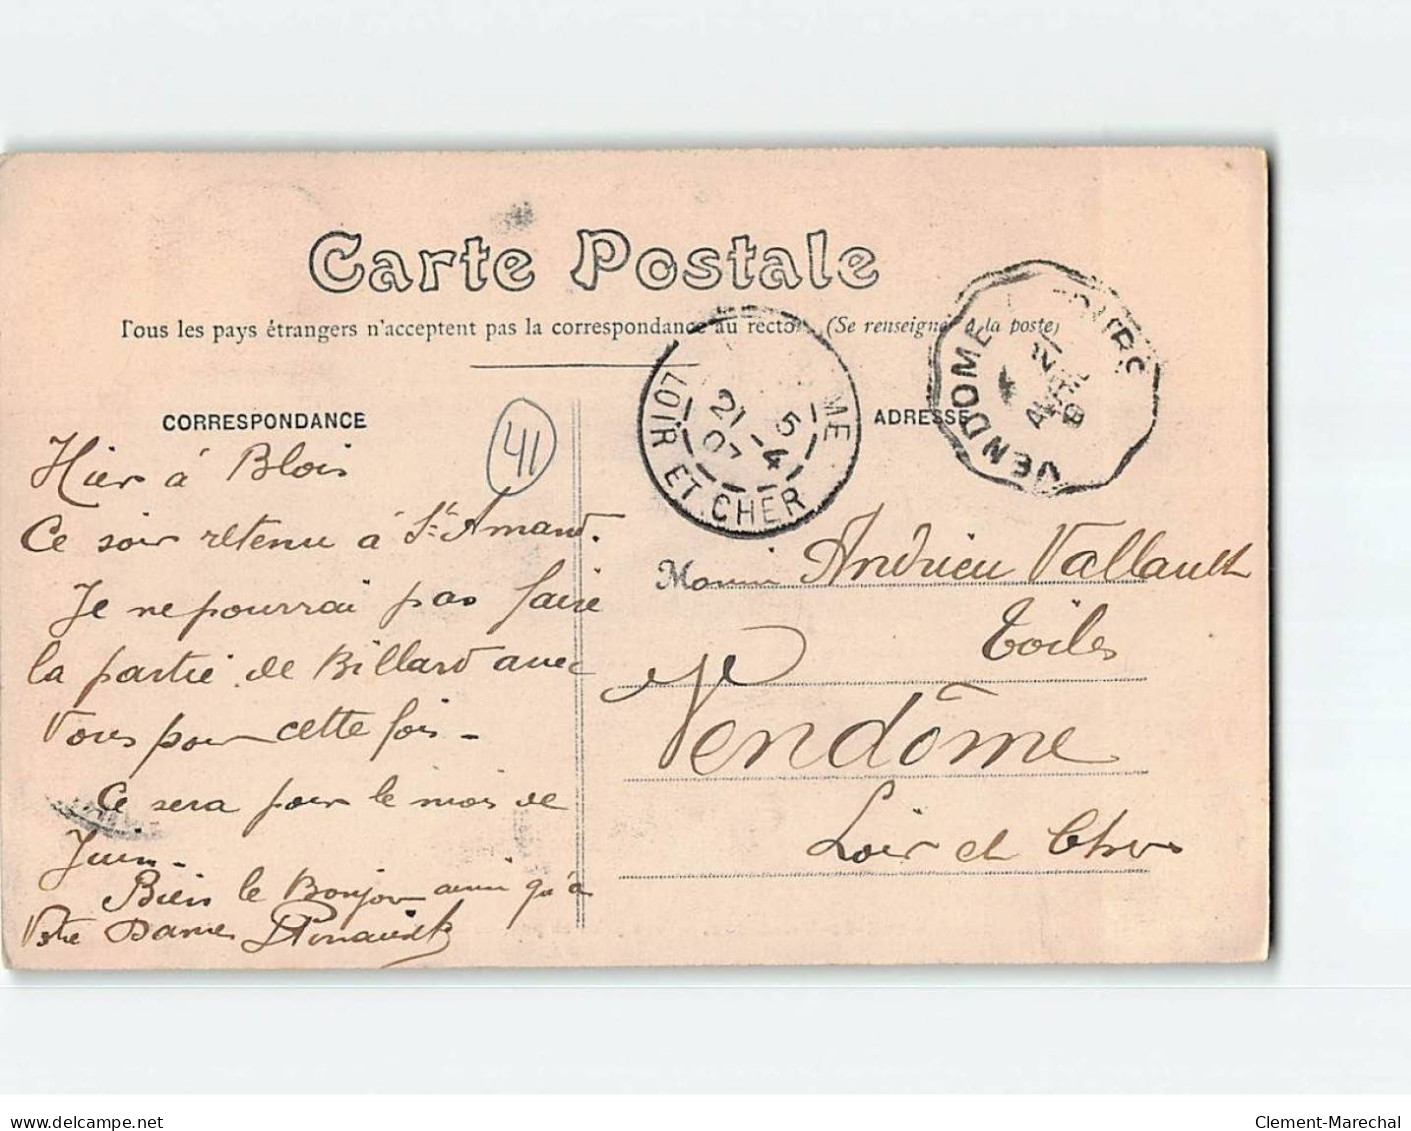 Carte Postale
Tous les pays étrangers n'acceptent pas la correspondance au recto. (Se renseigner à la poste)
CORRESPONDANCE
ADRESSE
41
LOIR ET CHER
21 - 4
07
VENDOME
Hier à Blois
Ce soir retenu à St Amand.
Je ne pourrai pas faire
la partie de Billard avec
Vous pour cette fois -
Ce sera pour le mois de
Juin -
Bien le Bonjour ainsi qu'à
Votre Dame
Monsieur Andrieu Vallault
Toiles
Vendôme
Loir et Cher
www.delcampe.net
Clement-Marechal